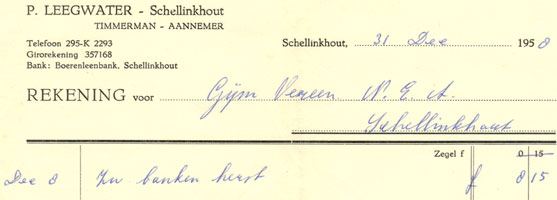 P. LEEGWATER - Schellinkhout
TIMMERMAN - AANNEMER
Telefoon 295-K 2293
Girorekening 357168
Bank: Boerenleenbank, Schellinkhout
Schellinkhout, 31 Dec 1958
REKENING voor Gijm Vereen N. E. A.
Schellinkhout
Zegel f 0 15
Dec 8 banken f 8 15